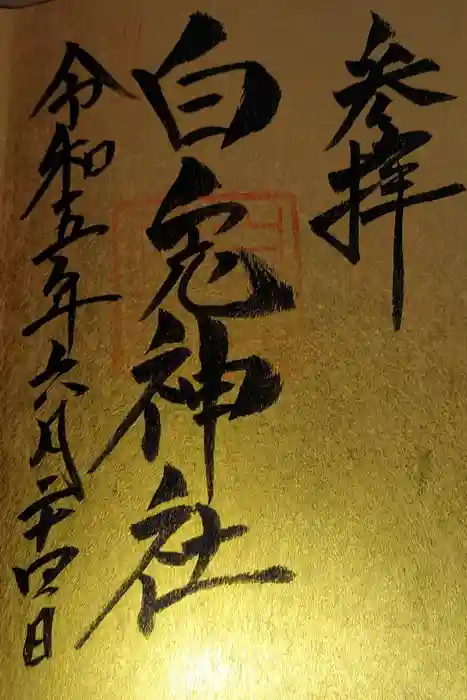 参拝
白兎神社
令和五年六月二十四日